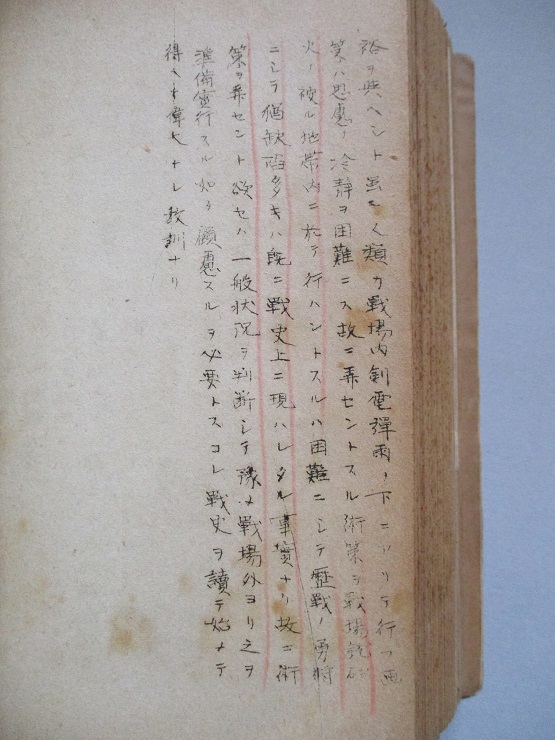 裕ヲ與ヘント虽モ人類カ戦場内剣電弾雨ノ下ニ行フ画
策ハ思慮ノ冷静ヲ困難ニス故ニ弄セントスル術策ヲ戦場
火ノ被ル地帯内ニ於テ行ハントスルハ困難ニシテ歴戦ノ勇将
ニシテ猶缺陥多キハ既ニ戦史上ニ現ハレタル事實ナリ故ニ術
策ヲ弄セント欲セハ一般状況ヲ判断シテ豫メ戦場外ヨリ之ヲ
準備實行スル如ク顧慮スルヲ必要トスコレ戦史ヲ讀テ始メテ
得ヘキ偉大ナル教訓ナリ